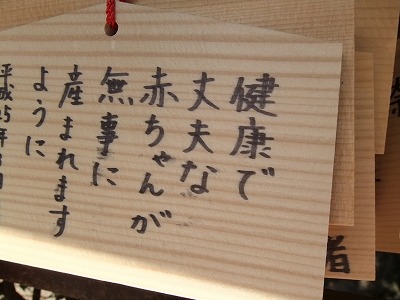 健康で
丈夫な
赤ちゃんが
無事に
産まれます
ように
者